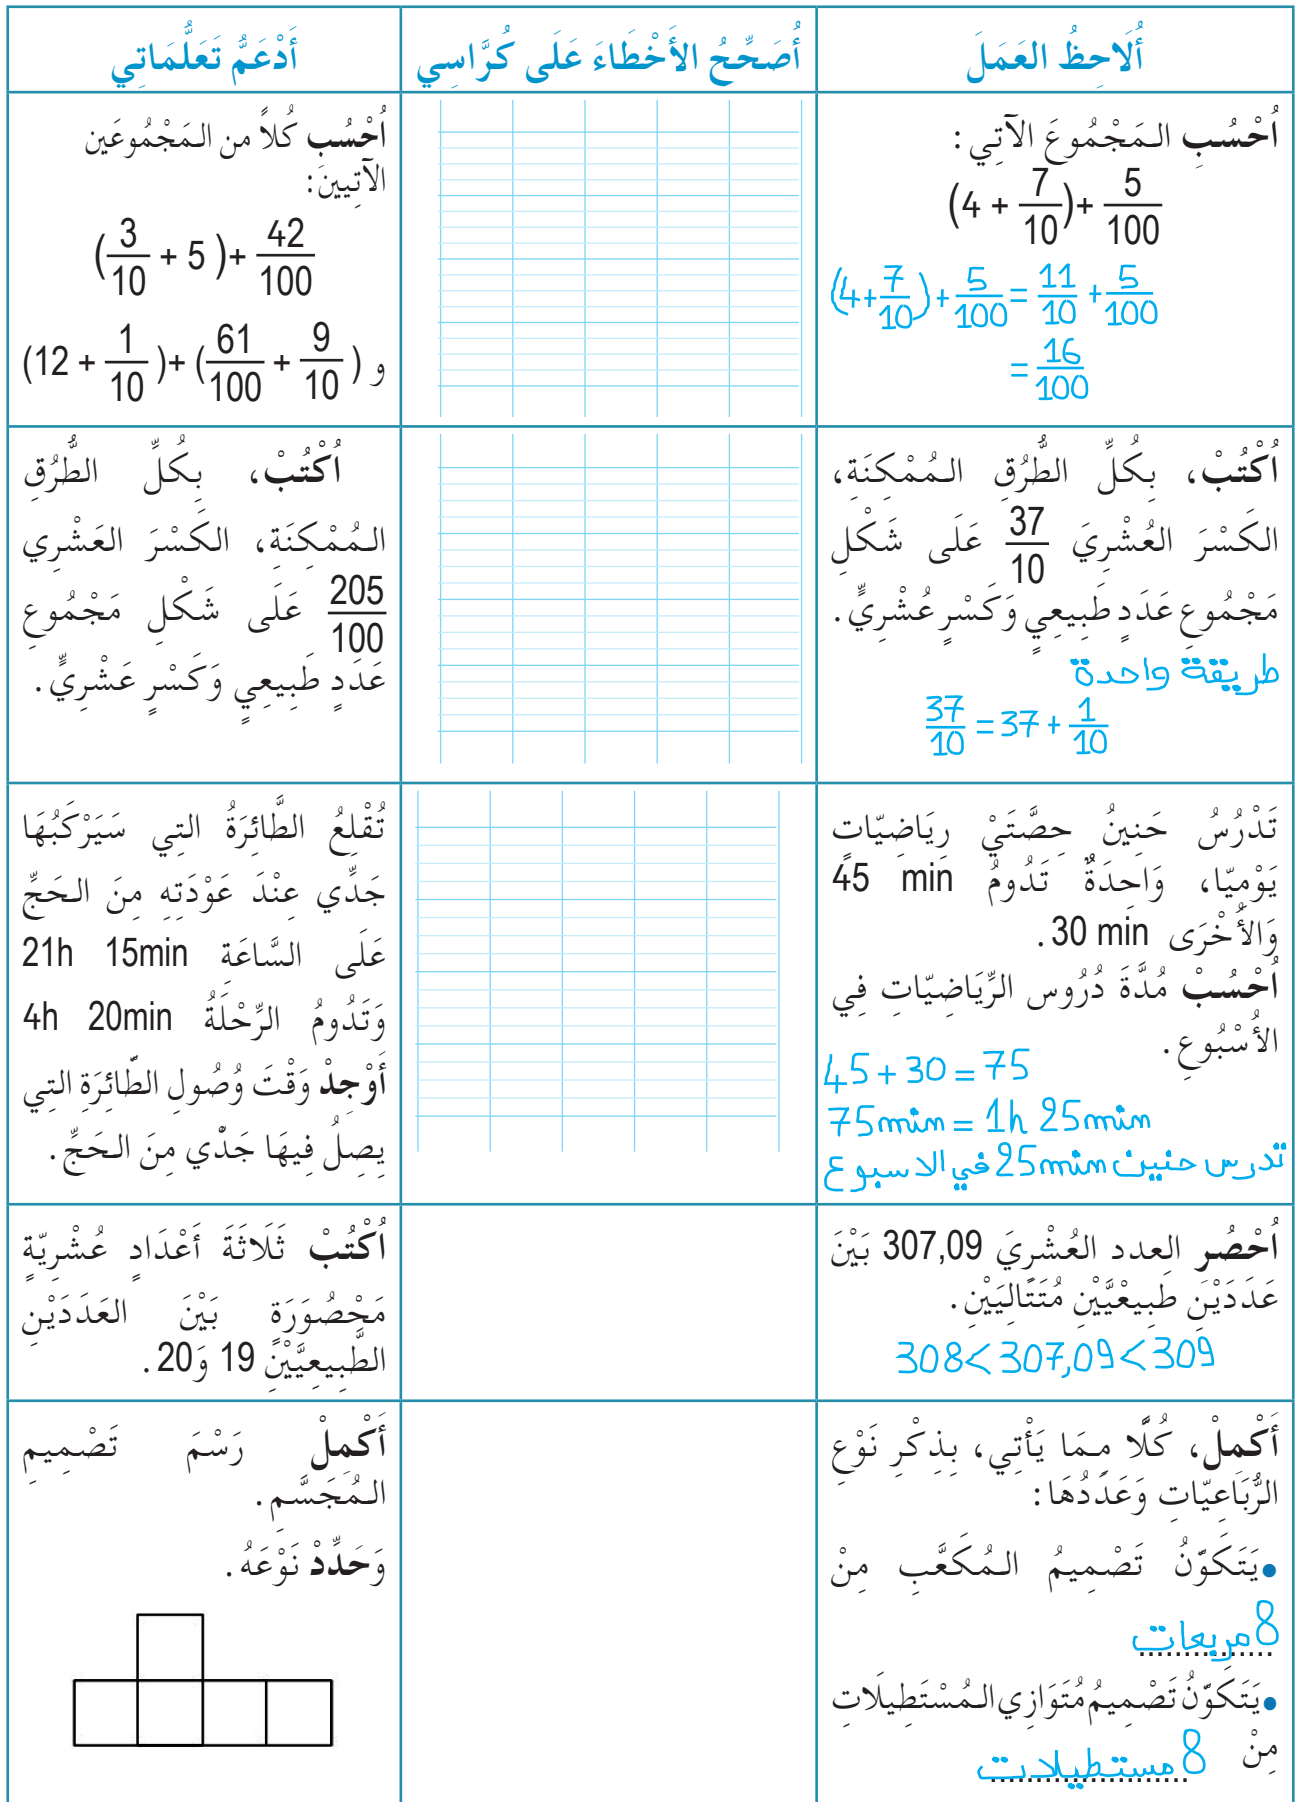 أُلَاحِظُ العَمَلَ
أُصَحِّحُ الأَخْطَاءَ عَلَى كُرَّاسِي
أَدْعَمُّ تَعَلُّمَاتِي
اُحْسُبِ المَجْمُوعَ الآتِي :
(4 + 7/10) + 5/100
(4+7/10)+5/100 = 11/10 + 5/100
= 16/100
اُحْسُبِ كُلاًّ من المَجْمُوعَين
الآتِيينَ:
(3/10 + 5 )+ 42/100
و (12 + 1/10 )+ (61/100 + 9/10 )
اُكْتُبْ، بِكُلِّ الطُّرُقِ المُمْكِنَةِ،
الكَسْرَ العُشْرِيَ 37/10 عَلَى شَكْلِ
مَجْمُوعِ عَدَدٍ طَبِيعِيٍ وَكَسْرٍ عُشْرِيٍّ .
طريقة واحدة
37/10 = 37 + 1/10
اُكْتُبْ، بِكُلِّ الطُّرُقِ
المُمْكِنَةِ، الكَسْرَ العَشْرِي
205/100 عَلَى شَكْلِ مَجْمُوعِ
عَدَدٍ طَبِيعِيٍ وَكَسْرٍ عَشْرِيٍّ .
تَدْرُسُ حَنِينُ حِصَّتَيْ رِيَاضِيّاتٍ
يَوْمِيّا، وَاحِدَةٌ تَدُومُ 45 min
وَالأُخْرَى 30 min .
اُحْسُبْ مُدَّةَ دُرُوس الرِّيَاضِيّاتِ فِي
الأُسْبُوعِ .
45 + 30 = 75
75min = 1h 25min
تدرس حنين 25min في الاسبوع
تُقْلِعُ الطَّائِرَةُ التِي سَيَرْكَبُهَا
جَدِّي عِنْدَ عَوْدَتِهِ مِنَ الحَجِّ
عَلَى السَّاعَةِ 21h 15min
وَتَدُومُ الرِّحْلَةُ 4h 20min
أَوْجِدْ وَقْتَ وُصُولِ الطّائِرَةِ التِي
يصِلُ فِيهَا جَدّي مِنَ الحَجِّ .
اُحْصُر العِدد العُشْرِيَ 307,09 بَيْنَ
عَدَدَيْنِ طَبِيعْيَّيْنِ مُتَتَالِيَيْنِ .
308<307,09<309
اُكْتُبْ ثَلَاثَةَ أَعْدَادٍ عُشْرِيّةٍ
مَحْصُورَةٍ بَيْنَ العَدَدَيْنِ
الطَّبِيعِيَّيْنِ 19 وَ20 .
أَكْمِلْ، كُلًّا مِمَا يَأْتِي، بِذِكْرِ نَوْعِ
الرُّبَاعِيّاتِ وَعَدَدُهَا :
•يَتَكَوّنُ تَصْمِيمُ المُكَعَّبِ مِنْ
8 مربعات
•يَتَكَوّنُ تَصْمِيمُ مُتَوَازِي المُسْتَطِيلَاتِ
مِنْ 8 مستطيلات
أَكْمِلْ رَسْمَ تَصْمِيمِ
المُجَسَّمِ .
وَحَدِّدْ نَوْعَهُ .